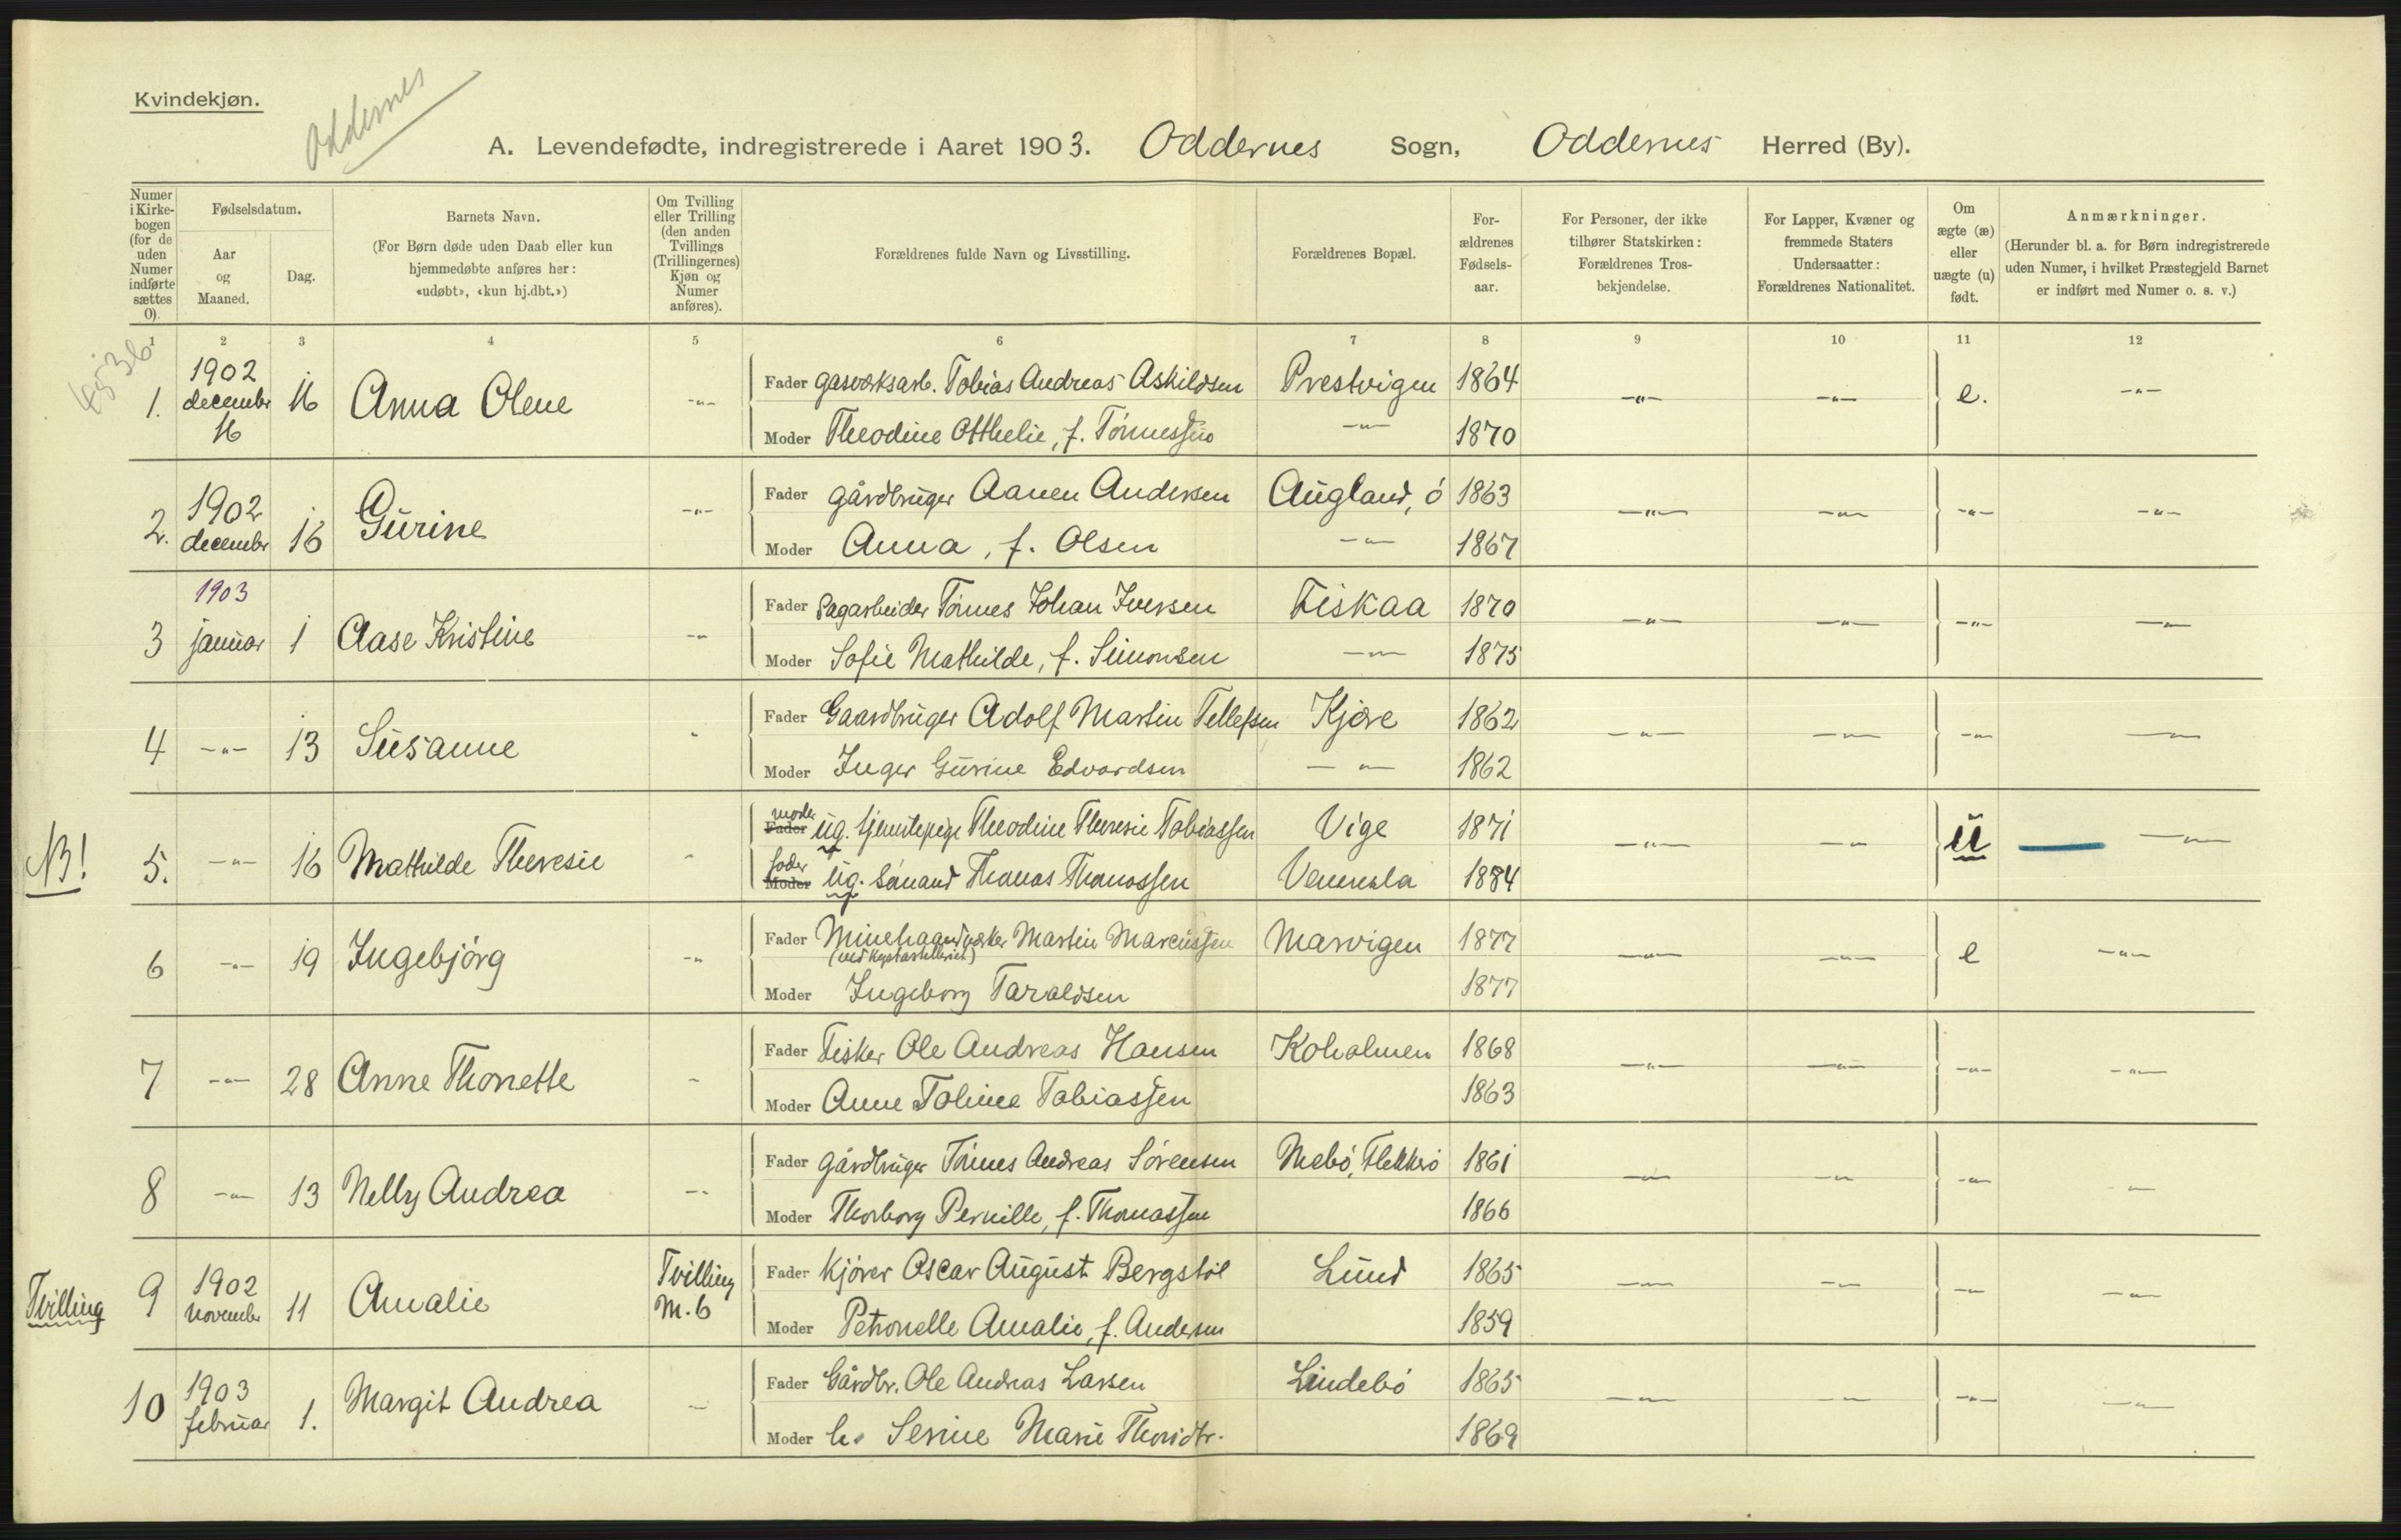 Kvindekjøn.
Oddernes
A. Levendefødte, indregistrerede i Aaret 1903. Oddernes Sogn, Oddernes Herred (By).
Numer i Kirkebogen (for de uden Numer indførte sættes 0).
Fødselsdatum.
Aar og Maaned.
Dag.
Barnets Navn.
(For Børn døde uden Daab eller kun hjemmedøbte anføres her: «udøbt», «kun hj.dbt.»)
Om Tvilling eller Trilling (den anden Tvillings (Trillingernes) Kjøn og Numer anføres).
Forældrenes fulde Navn og Livsstilling.
Forældrenes Bopæl.
Forældrenes Fødselsaar.
For Personer, der ikke tilhører Statskirken: Forældrenes Trosbekjendelse.
For Lapper, Kvæner og fremmede Staters Undersaatter: Forældrenes Nationalitet.
Om ægte (æ) eller uægte (u) født.
Anmærkninger.
(Herunder bl. a. for Børn indregistrerede uden Numer, i hvilket Præstegjeld Barnet er indført med Numer o. s. v.)
1 2 3 4 5 6 7 8 9 10 11 12
1. 1902 december 16 16 Anna Olene -"- Fader gasværksarb. Tobias Andreas Askildsen Prestvigen 1864 -"- -"- e. -"-
Moder Theodine Otthelie, f. Tønnessen -"- 1870
2. 1902 december 16 Gurine -"- Fader gårdbruger Aanen Andersen Augland, ø 1863 -"- -"- -"- -"-
Moder Anna, f. Olsen -"- 1867
3 1903 januar 1 Aase Kristine -"- Fader Sagarbeider Tønnes Johan Iversen Fiskaa 1870 -"- -"- -"- -"-
Moder Sofie Mathilde, f. Simonsen -"- 1875
4 -"- 13 Susanne " Fader Gaardbruger Adolf Martin Tellefsen Kjøre 1862 -"- -"- -"- -"-
Moder Inger Gurine Edvardsen -"- 1862
NB! 5. -"- 16 Mathilde Theresie " Fader moder ug. tjenstepige Theodine Theresie Tobiassen Vige 1871 -"- -"- u -"-
Moder fader ug. Sømand Thomas Thomassen Vennesla 1884
6 -"- 19 Ingebjørg -"- Fader Minehaandværker Martin Marcussen Marvigen 1877 -"- -"- e -"-
(ved Kystartilleriet)
Moder Ingeborg Taraldsen 1877
7 -"- 28 Anne Thonette " Fader Fisker Ole Andreas Hansen Koholmen 1868 -"- -"- -"- -"-
Moder Anne Toline Tobiassen 1863
8 -"- 13 Nelly Andrea -"- Fader gårdbruger Tønnes Andreas Sørensen Mebø, Flekkerø 1861 -"- -"- -"- -"-
Moder Thorborg Pernille, f. Thomassen 1866
Tvilling 9 1902 November 11 Amalie Tvilling M. 6 Fader Kjører Oscar August Bergstøl Lund 1865 -"- -"- -"- -"-
Moder Petronelle Amalie, f. Andersen 1859
10 1903 februar 1. Margit Andrea - Fader Gårdbr. Ole Andreas Larsen Lindebø 1865 -"- -"- -"- -"-
Moder h. Serine Marie Thorsdtr. 1869